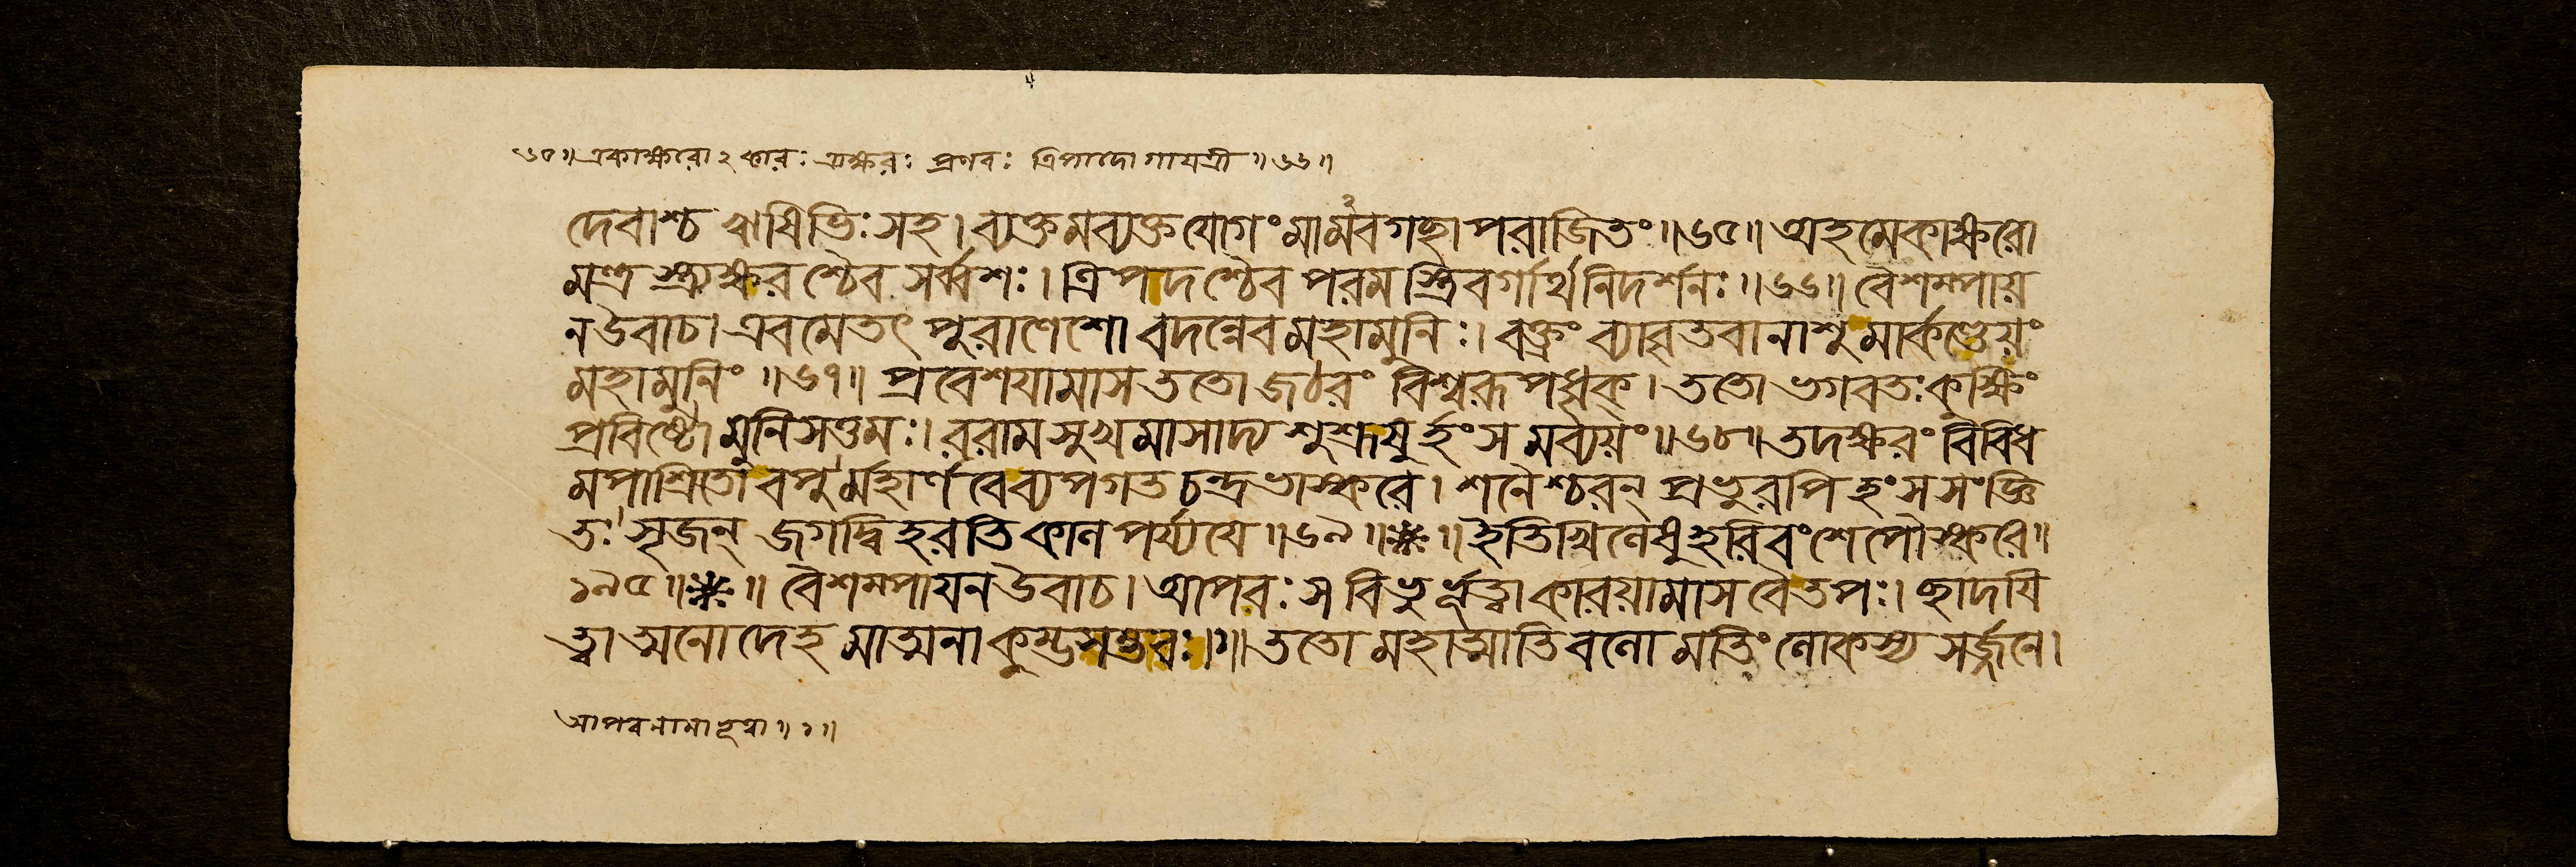 ৬৫॥ একাক্ষরোঽকারঃ ত্র্যক্ষরঃ প্রণবঃ ত্রিপাদো গাযত্রী॥৬৬॥
দেবাশ্চ ঋষিভিঃ সহ। ব্যক্তমব্যক্তযোগং মামবগছাপরাজিতং॥৬৫॥ অহমেকাক্ষরো
মন্ত্রস্ত্র্যক্ষরশ্চৈব সর্ব্বশঃ। ত্রিপদশ্চৈব পরমস্ত্রিবর্গার্থনিদর্শনঃ॥৬৬॥ বৈশম্পায়
ন উবাচ। এবমেতৎ পুরাণেশো বদন্নেব মহামুনিঃ। বক্ত্রং ব্যাবৃতবানাশু মার্কণ্ডেয়ং
মহামুনিং॥৬৭॥ প্রবেশযামাস ততো জঠরং বিশ্বরূপধৃক্। ততো ভগবতঃ কুক্ষিং
প্রবিষ্টো মুনিসত্তমঃ। ররাম সুখমাসাদ্য শুশ্রূষুর্হংসমব্যয়ং॥৬৮॥ তদক্ষরং বিবিধ
মপাশ্রিতো বপুর্মহার্ণবে ব্যপগতচন্দ্রভাস্করে। শনৈশ্চরন্ প্রভুরপি হংসসংজ্ঞি
তঃ সৃজন্ জগদ্বিহরতি কালপর্য্যযে॥৬৯॥ * ॥ ইতি খিলেষু হরিবংশে পৌস্করে॥
১৯৫॥ * ॥ বৈশম্পাযন উবাচ। আপবঃ স বিভুর্ভূত্বা কারয়ামাস বৈ তপঃ। ছাদযি
ত্বাত্মনো দেহমাত্মনা কুম্ভসম্ভবঃ॥১॥ ততো মহাত্মাতিবলো মতিং লোকস্য সর্জ্জনে।
আপবনামা ভূত্বা॥১॥